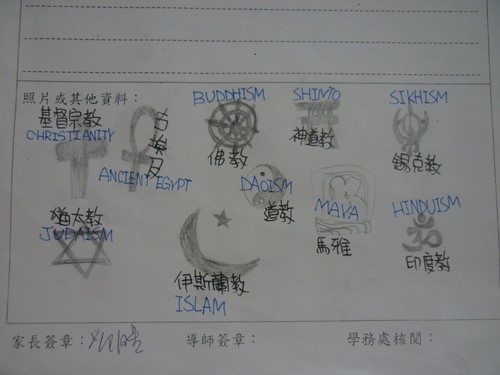 照片或其他資料：
基督宗教
CHRISTIANITY
古埃及
ANCIENT EGYPT
BUDDHISM
佛教
SHINTO
神道教
SIKHISM
錫克教
DAOISM
道教
MAYA
馬雅
HINDUISM
印度教
猶太教
JUDAISM
伊斯蘭教
ISLAM
家長簽章：
導師簽章：
學務處核閱：